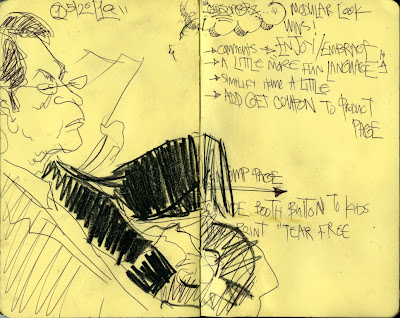 5/25/10
MODULAR LOOK
WINS!
→ COMMENTS → ENJOY/EMBRACE
→ A LITTLE MORE FUN LANGUAGE
→ SIMPLIFY HOME A LITTLE
→ ADD GET COUPON TO PRODUCT
PAGE
PAGE
BOOTH BUTTON TO KIDS
POINT "TEAR FREE